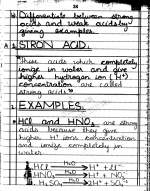 24
Q Differentiate between strong
acids and weak acids by
giving examples.
A STRON ACID.
These acids which completely
ionize in water and give
higher hydrogen ion (H⁺)
concentration are called
strong acids.
EXAMPLES.
HCl and HNO₃ are strong
acids because they give
higher H⁺ ions concentration
and ionize completely in
water.
HCl H₂O H⁺ + Cl⁻
HNO₃ H₂O H⁺ + NO₃⁻
H₂SO₄ H₂O 2H⁺ + SO₄⁻²